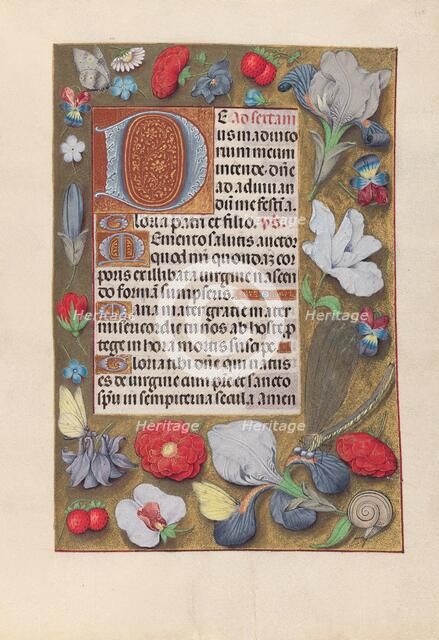 DE Ad sextam
us in adiuto
rium meum
intende. Dñe
ad adiuvan
dum me festina.
Gloria patri et filio. ps.
Memento salutis auctor
quod nri quondam cor
poris ex illibata virgine nascen
do formam sumpseris.
Maria mater gratie mater
misericordie tu nos ab hoste p
tege in hora mortis suscipe
Gloria tibi dñe qui natus
es de virgine cum pre et sancto
spu in sempiterna secula amen
Heritage
Heritage
Heritage
Heritage
Heritage
Heritage